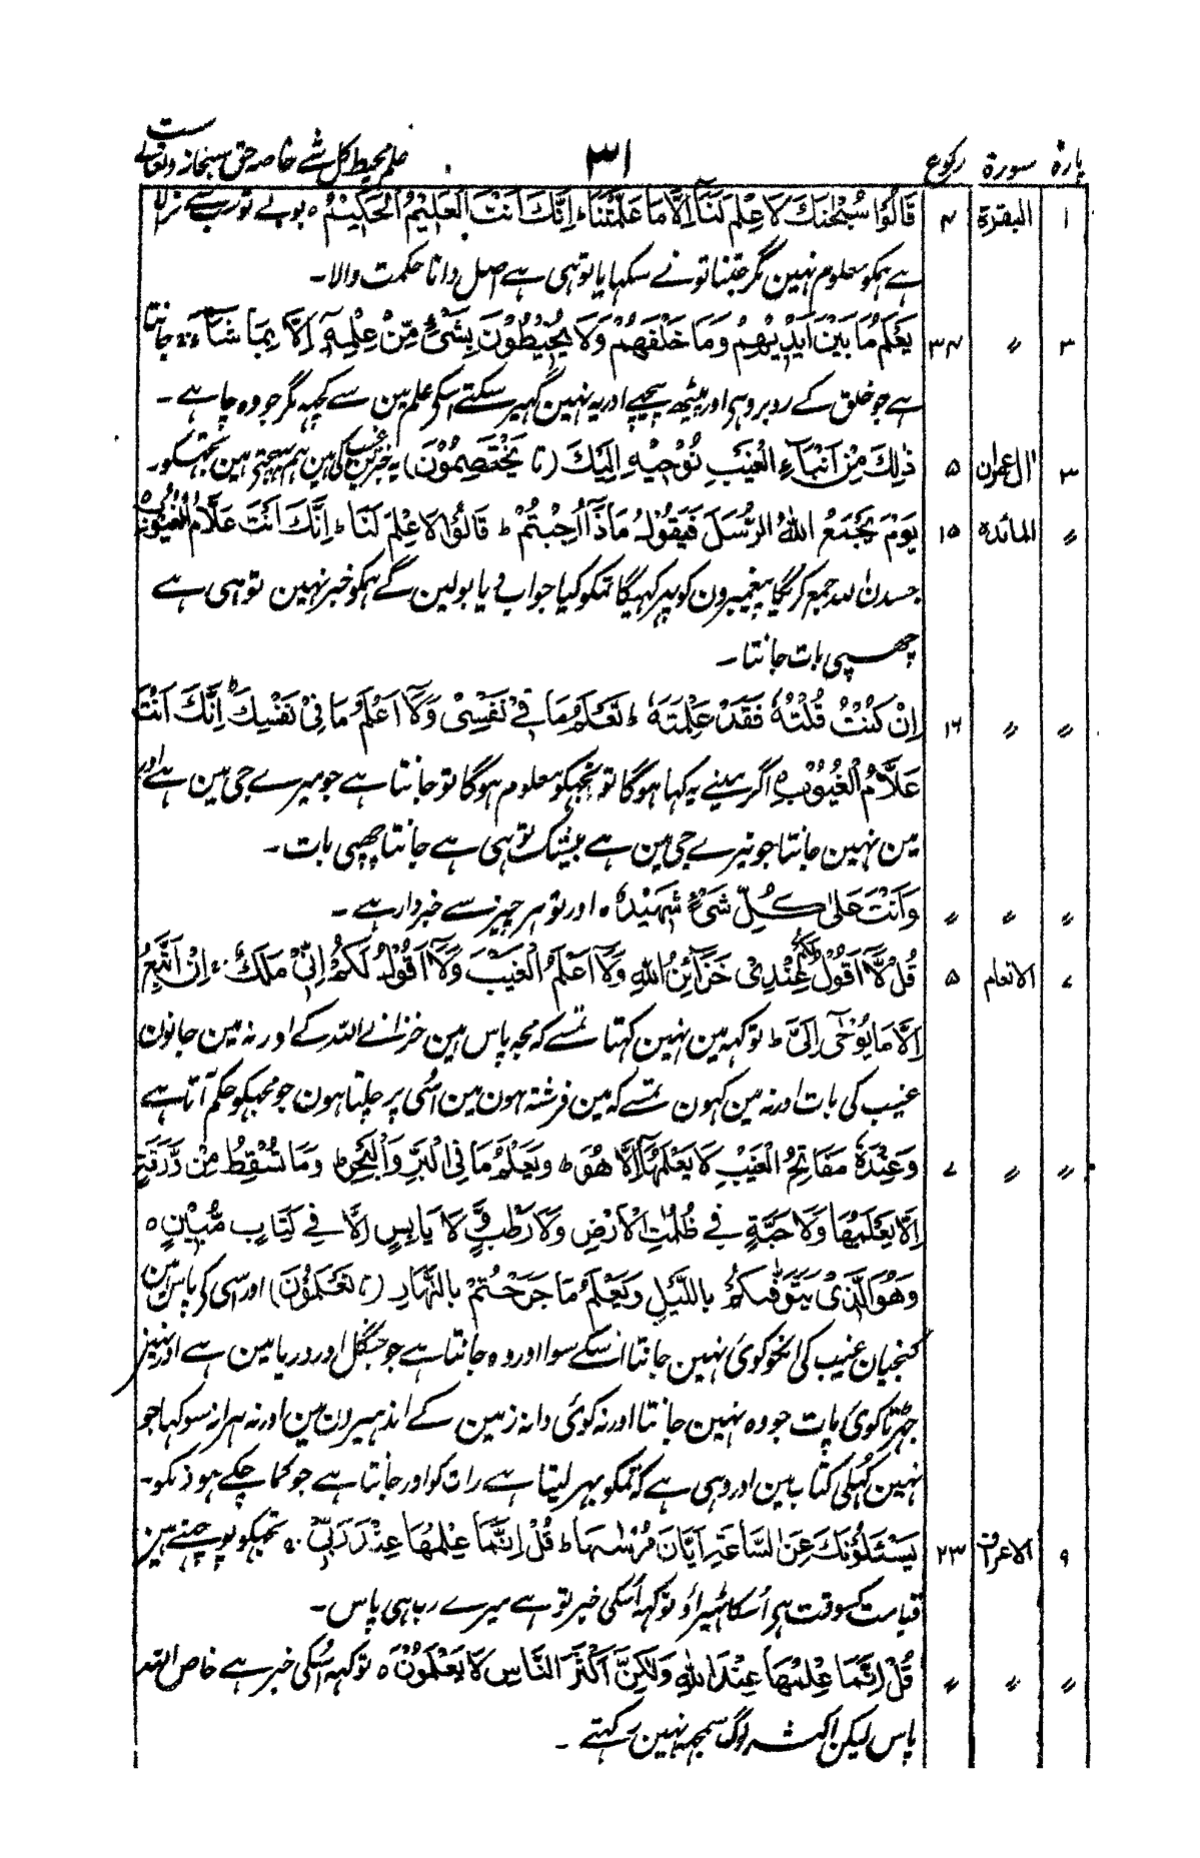 پارۃ سورۃ رکوع ۳۱ علم محیط کل شے خاصہ حق سبحانہ وتعالی ست
۱ البقرۃ ۴ قَالُوْا سُبْحٰنَكَ لَا عِلْمَ لَنَآ اِلَّا مَا عَلَّمْتَنَا ؕ اِنَّكَ اَنْتَ الْعَلِيْمُ الْحَكِيْمُ ہ بولے تو سب سے نرالا
ہے ہمکو معلوم نہین مگر جتنا تونے سکہایا توہی ہے اصل دانا حکمت والا۔
۳ 〃 ۳۴ يَعْلَمُ مَا بَيْنَ اَيْدِيْهِمْ وَمَا خَلْفَهُمْ وَلَا يُحِيْطُوْنَ بِشَيْءٍ مِّنْ عِلْمِهٖٓ اِلَّا بِمَا شَآءَ جانتا
ہے جو خلق کے روبرو ہی اور پیٹھ پیچہے اور یہ نہین گہیر سکتے اسکی علم مین سے کچہہ مگر جو وہ چاہے۔
۳ اٰل عمران ۵ ذٰلِكَ مِنْ اَنْبَآءِ الْغَيْبِ نُوْحِيْهِ اِلَيْكَ (تا يَخْتَصِمُوْنَ) یہ خبرین غیب کی ہین ہم بہیجتی ہین تجہکو۔
〃 المائدہ ۱۵ يَوْمَ يَجْمَعُ اللهُ الرُّسُلَ فَيَقُوْلُ مَاذَآ اُجِبْتُمْ ؕ قَالُوْا لَا عِلْمَ لَنَا ؕ اِنَّكَ اَنْتَ عَلَّامُ الْغُيُوْبِ
جسدن اللہ جمع کریگا پیغمبرون کو پہر کہیگا تمکو کیا جواب دیا بولین گے ہمکو خبر نہین توہی ہے
چھپی بات جانتا۔
〃 〃 ۱۶ اِنْ كُنْتُ قُلْتُهٗ فَقَدْ عَلِمْتَهٗ ؕ تَعْلَمُ مَا فِيْ نَفْسِيْ وَلَآ اَعْلَمُ مَا فِيْ نَفْسِكَ ؕ اِنَّكَ اَنْتَ
عَلَّامُ الْغُيُوْبِ ہ اگر مینے یہ کہا ہوگا تو تجہکو معلوم ہوگا تو جانتا ہے جو میرے جی مین ہے اور
مین نہین جانتا جو تیرے جی مین ہے بیشک توہی ہے جانتا چھپی بات۔
〃 〃 〃 وَاَنْتَ عَلٰى كُلِّ شَيْءٍ شَهِيْدٌ ہ اور تو ہر چیز سے خبردار ہے۔
۷ الانعام ۵ قُلْ لَّآ اَقُوْلُ لَكُمْ عِنْدِيْ خَزَآئِنُ اللهِ وَلَآ اَعْلَمُ الْغَيْبَ وَلَآ اَقُوْلُ لَكُمْ اِنِّيْ مَلَكٌ ۚ اِنْ اَتَّبِعُ
اِلَّا مَا يُوْحٰى اِلَيَّ ؕ تو کہہ مین نہین کہتا تمسے کہ مجہہ پاس ہین خزانے اللہ کے اور نہ مین جانون
غیب کی بات اور نہ مین کہون تمسے کہ مین فرشتہ ہون مین اسی پر چلتا ہون جو مجہکو حکم آتا ہے
〃 〃 ۷ وَعِنْدَهٗ مَفَاتِحُ الْغَيْبِ لَا يَعْلَمُهَآ اِلَّا هُوَ ؕ وَيَعْلَمُ مَا فِي الْبَرِّ وَالْبَحْرِ ؕ وَمَا تَسْقُطُ مِنْ وَّرَقَةٍ
اِلَّا يَعْلَمُهَا وَلَا حَبَّةٍ فِيْ ظُلُمٰتِ الْاَرْضِ وَلَا رَطْبٍ وَّلَا يَابِسٍ اِلَّا فِيْ كِتَابٍ مُّبِيْنٍ ہ
وَهُوَ الَّذِيْ يَتَوَفّٰىكُمْ بِاللَّيْلِ وَيَعْلَمُ مَا جَرَحْتُمْ بِالنَّهَارِ (تا تَعْمَلُوْنَ) اور اسی کر پاس ہین
کنجیان غیب کی انکو کوئی نہین جانتا اسکے سوا اور وہ جانتا ہے جو جنگل اور دریا مین ہے اور نہین
جہڑتا کوئی پات جو وہ نہین جانتا اور نہ کوئی دانہ زمین کے اندہیرون مین اور نہ ہرا نہ سوکہا جو
نہین کہلی کتاب مین اور وہی ہے کہ تمکو بہر لیتا ہے رات کو اور جانتا ہے جو کما چکے ہو دنکو۔
۹ الاعراف ۲۳ يَسْئَلُوْنَكَ عَنِ السَّاعَةِ اَيَّانَ مُرْسٰىهَا ؕ قُلْ اِنَّمَا عِلْمُهَا عِنْدَ رَبِّيْ ۚ تجہکو پوچہتے ہین
قیامت کسوقت ہی اُسکا ٹہیراؤ تو کہہ اُسکی خبر تو ہے میرے رب ہی پاس۔
〃 〃 〃 قُلْ اِنَّمَا عِلْمُهَا عِنْدَ اللهِ وَلٰكِنَّ اَكْثَرَ النَّاسِ لَا يَعْلَمُوْنَ ہ تو کہہ اُسکی خبر ہے خاص اللہ
پاس لیکن اکثر لوگ سمجہہ نہین رکہتے۔